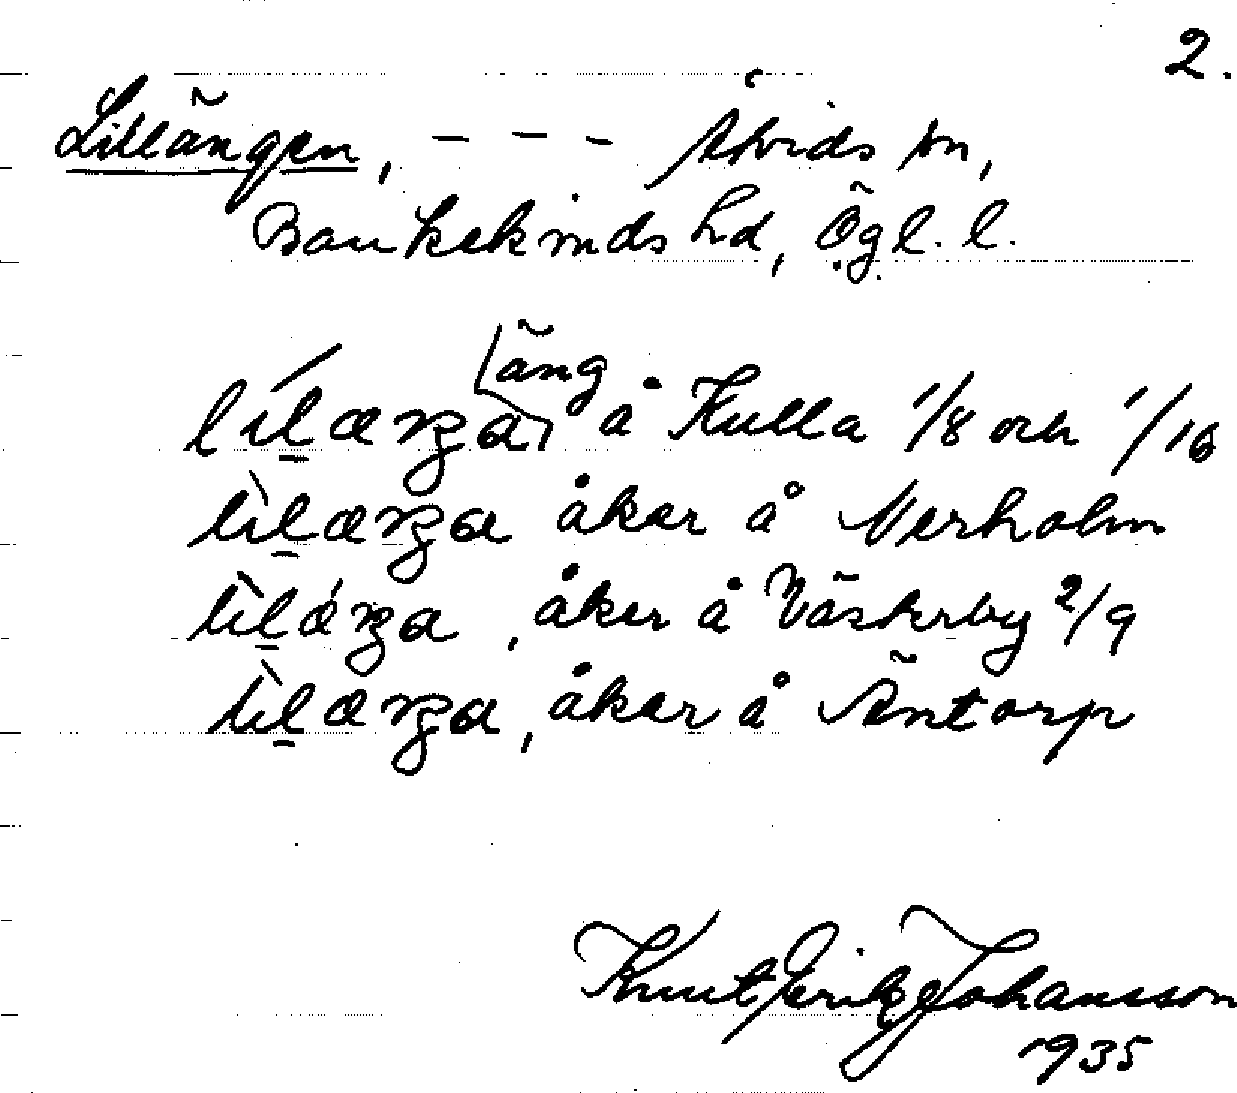 2.
Lillängen, – – – Åtvids sn,
Bankekinds hd, Ögl. l.
äng
lílæŋa å Kulla 1/8 och 1/16
lìlæŋa åker å Nerholm
lìlǽŋa, åker å Västerby 2/9
lìlæŋa, åker å Äntorp
Knut Erik Johansson
1935